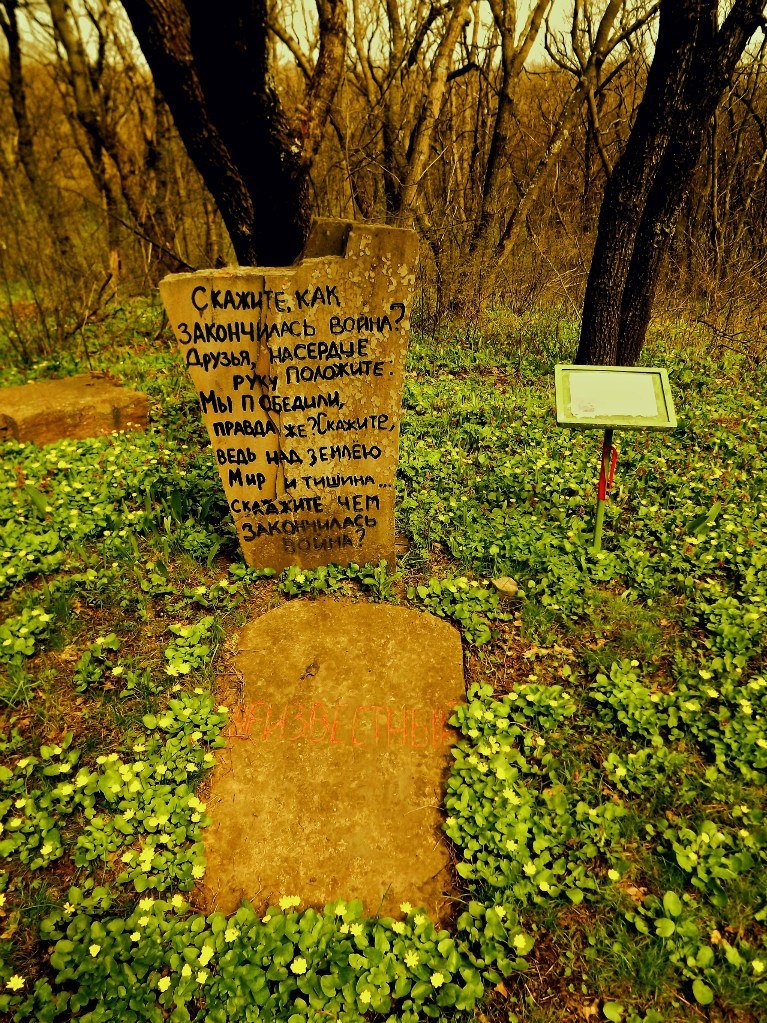 Скажите, как
закончилась война?
Друзья, на сердце
руку положите.
Мы победили,
правда же? Скажите,
ведь над землёю
Мир и тишина...
скажите чем
закончилась
война?
Неизвестный